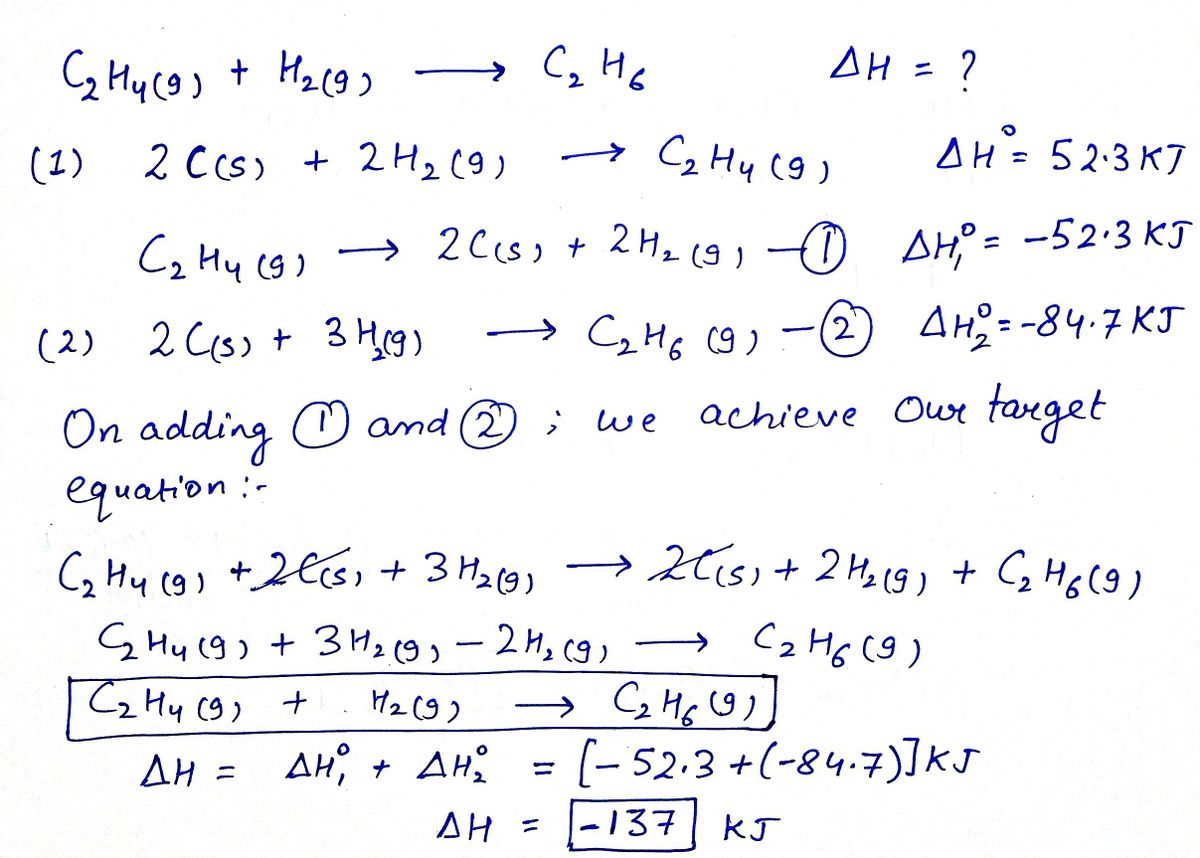 C₂H₄(g) + H₂(g) ⟶ C₂H₆ ΔH = ?
(1) 2C(s) + 2H₂(g) ⟶ C₂H₄(g) ΔH° = 52.3 KJ
C₂H₄(g) ⟶ 2C(s) + 2H₂(g) —① ΔH₁° = -52.3 KJ
(2) 2C(s) + 3H₂(g) ⟶ C₂H₆(g) —② ΔH₂° = -84.7 KJ
On adding ① and ② ; we achieve our target
equation :-
C₂H₄(g) + 2C(s) + 3H₂(g) ⟶ 2C(s) + 2H₂(g) + C₂H₆(g)
C₂H₄(g) + 3H₂(g) - 2H₂(g) ⟶ C₂H₆(g)
C₂H₄(g) + H₂(g) ⟶ C₂H₆(g)
ΔH = ΔH₁° + ΔH₂° = [-52.3 + (-84.7)] KJ
ΔH = -137 KJ